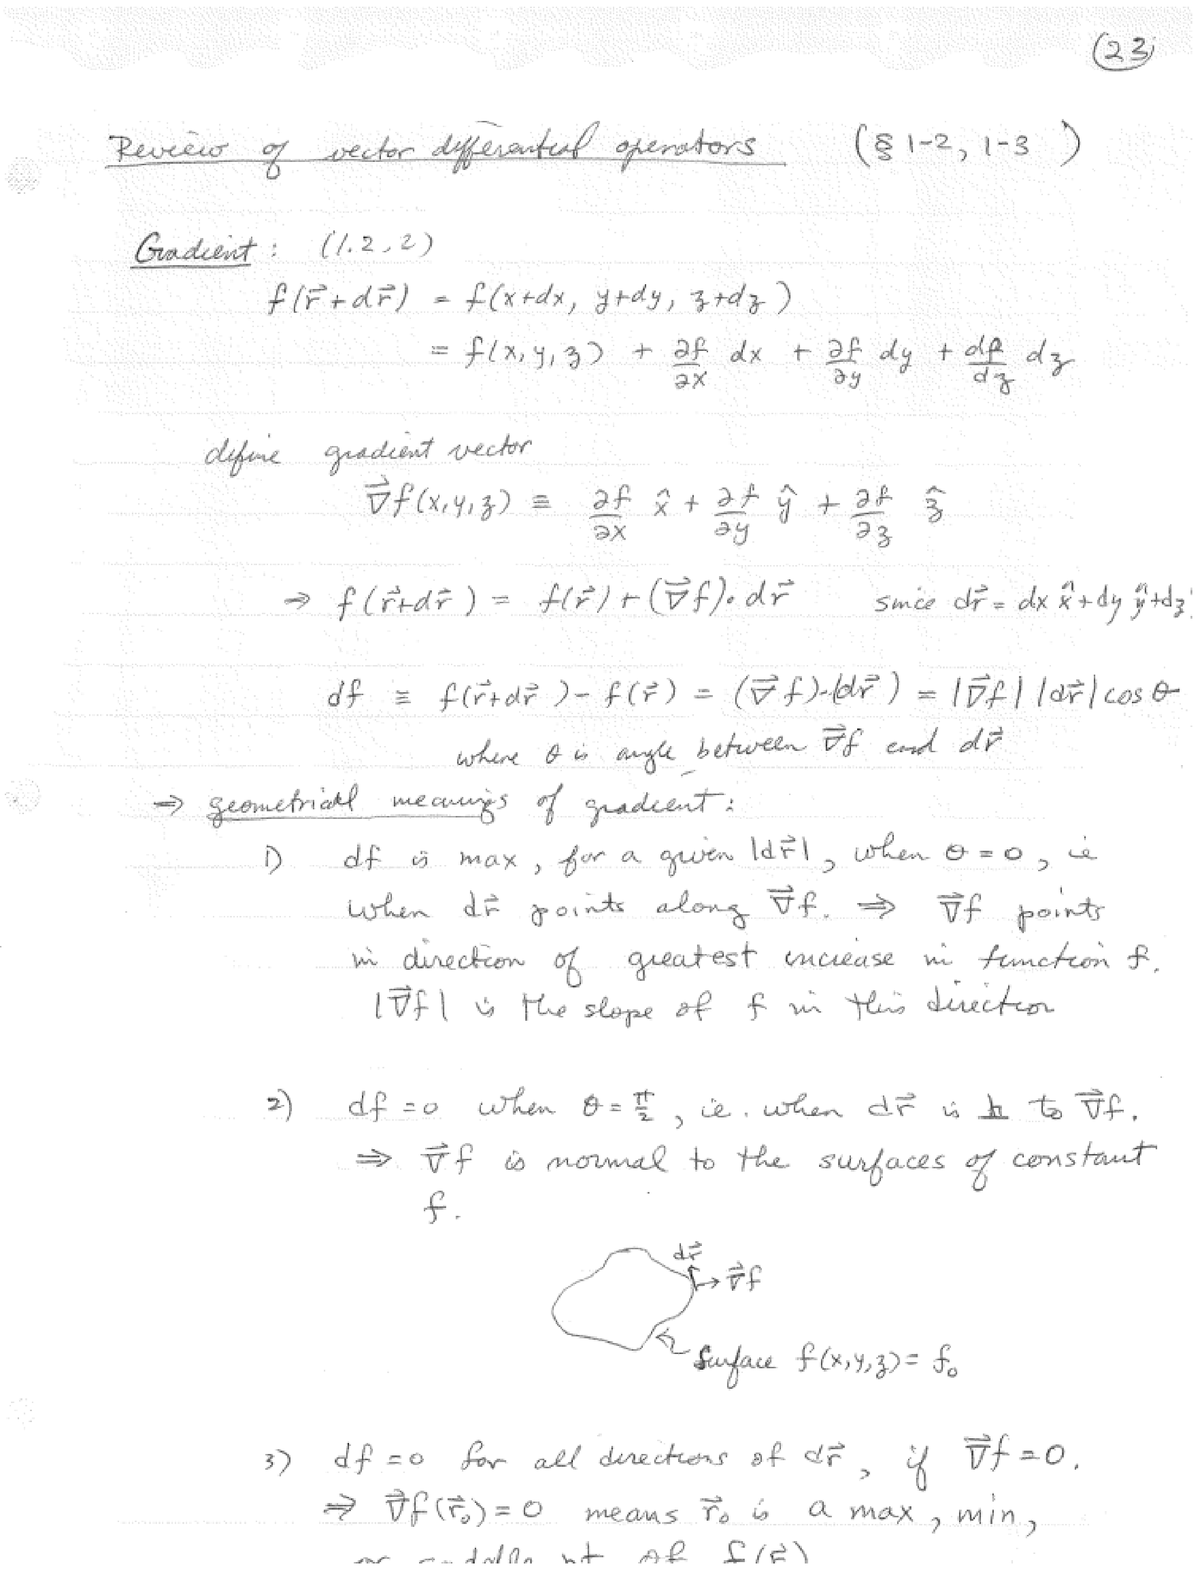 (23)
Review of vector differential operators (§ 1-2, 1-3 )
Gradient : (1.2.2)
f(r⃗+dr⃗) = f(x+dx, y+dy, z+dz)
= f(x,y,z) + ∂f/∂x dx + ∂f/∂y dy + df/dz dz
define gradient vector
∇⃗f(x,y,z) ≡ ∂f/∂x x̂ + ∂f/∂y ŷ + ∂f/∂z ẑ
⇒ f(r⃗+dr⃗) = f(r⃗) + (∇⃗f)·dr⃗ since dr⃗ = dx x̂ + dy ŷ + dz
df ≡ f(r⃗+dr⃗) - f(r⃗) = (∇⃗f)·(dr⃗) = |∇⃗f| |dr⃗| cos θ
where θ is angle between ∇⃗f and dr⃗
⇒ geometrical meanings of gradient:
1) df is max, for a given |dr⃗|, when θ = 0, ie
when dr⃗ points along ∇⃗f. ⇒ ∇⃗f points
in direction of greatest increase in function f.
|∇⃗f| is the slope of f in this direction
2) df = 0 when θ = π/2, ie. when dr⃗ is ⊥ to ∇⃗f.
⇒ ∇⃗f is normal to the surfaces of constant
f.
dr⃗
∇⃗f
surface f(x,y,z) = f₀
3) df = 0 for all directions of dr⃗, if ∇⃗f = 0.
⇒ ∇⃗f(r⃗₀) = 0 means r⃗₀ is a max, min,
or saddle pt of f(r⃗)